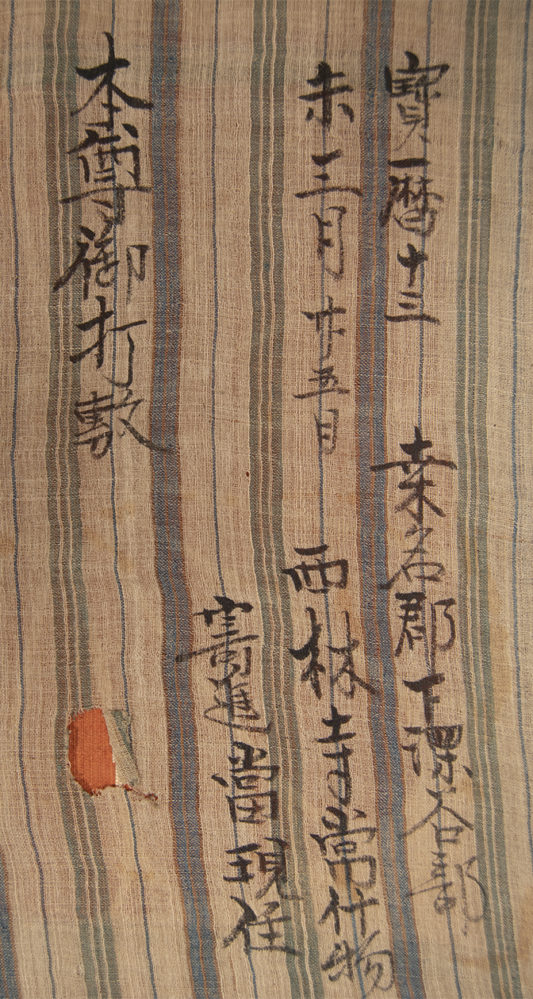 寳暦十三
未三月廿五日
桒名郡下深谷部
西林寺常什物
寄進當現住
本尊御打敷